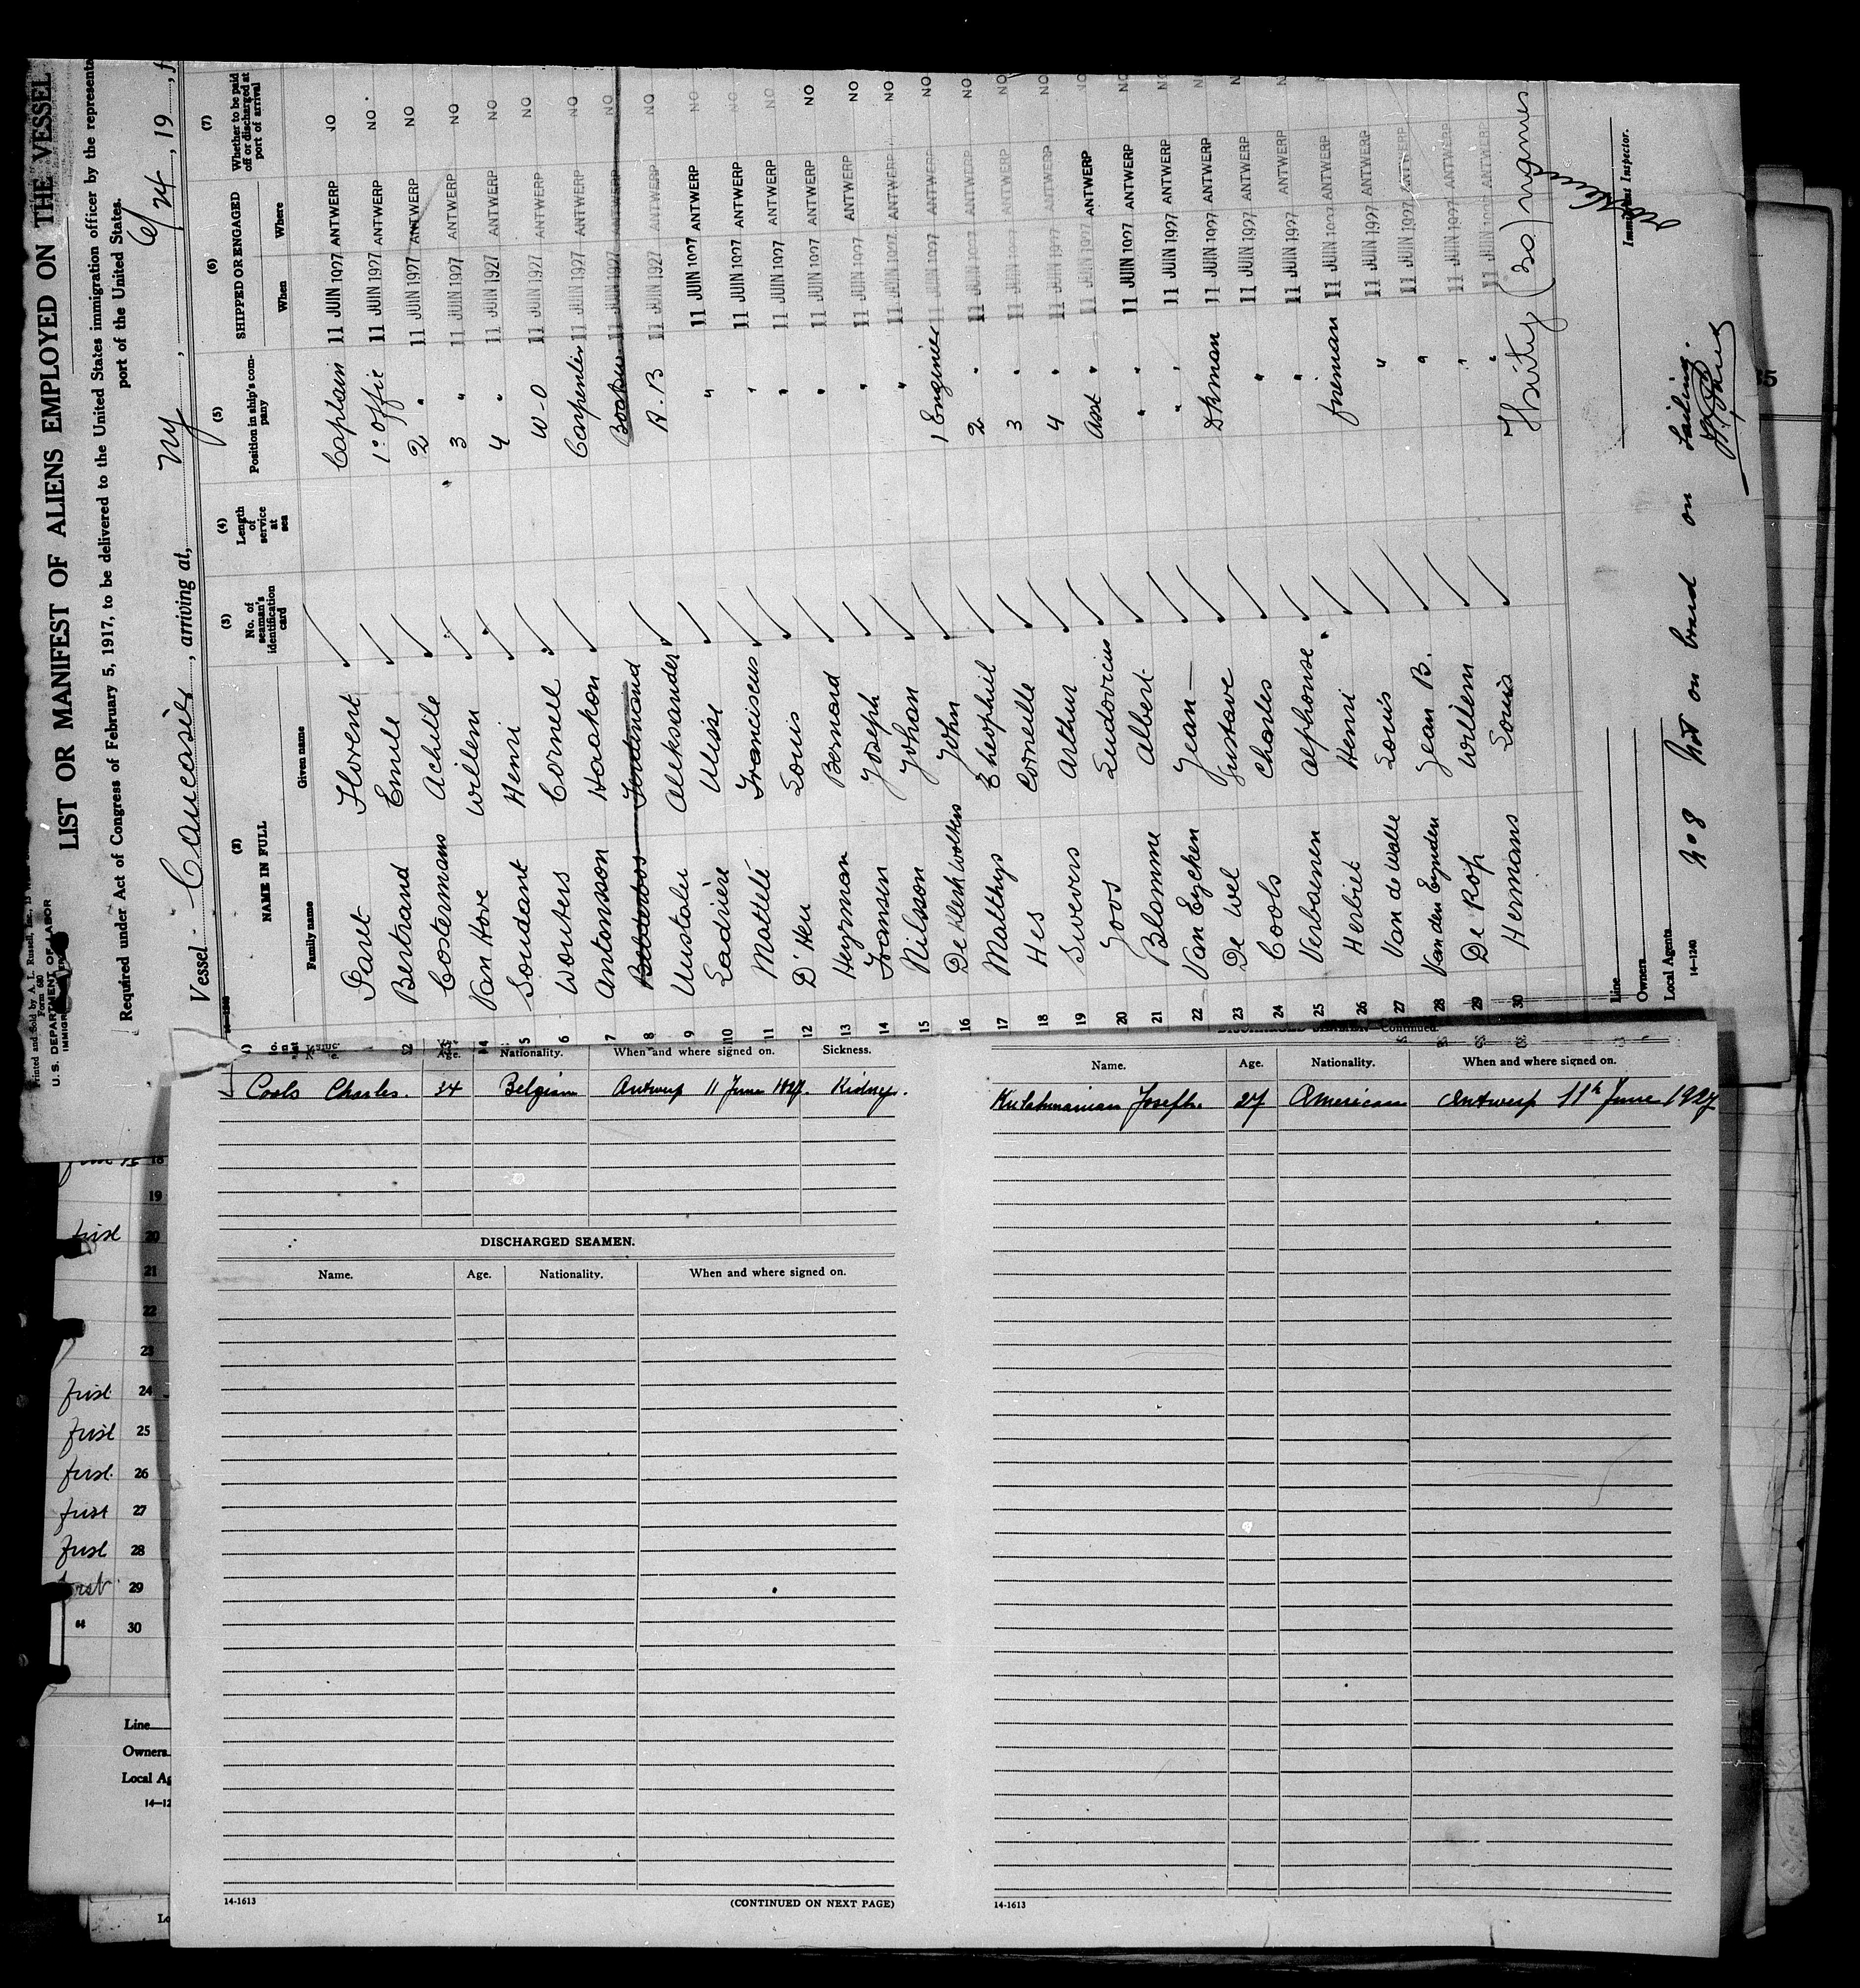 Printed and Sold by A. L. Russell, Inc.
Form 680
U. S. DEPARTMENT OF LABOR
LIST OR MANIFEST OF ALIENS EMPLOYED ON THE VESSEL
Required under Act of Congress of February 5, 1917, to be delivered to the United States immigration officer by the representa
port of the United States.
Vessel Caucasier, arriving at, NY, 6/24, 19
(2) (3) (4) (5) (6) (7)
NAME IN FULL No. of seaman's identification card Length of service at sea Position in ship's company SHIPPED OR ENGAGED Whether to be paid off or discharged at port of arrival
Family name Given name When Where
Paret Florent Captain 11 JUIN 1927 ANTWERP NO
2 Bertrand Emile 1º offic 11 JUIN 1927 ANTWERP NO
Costermans Achille 2 " 11 JUIN 1927 ANTWERP NO
4 Van Hove Willem 3 " 11 JUIN 1927 ANTWERP NO
5 Soudant Henri 4 " 11 JUIN 1927 ANTWERP NO
6 Wouters Corneel W-O 11 JUIN 1927 ANTWERP NO
7 Antonsson Haakon Carpenter 11 JUIN 1927 ANTWERP NO
8 Ferdinand 11 JUIN 1927 ANTWERP NO
9 Uustalu Aleksander A.B 11 JUIN 1927 ANTWERP NO
10 Ladrière Ulisse " 11 JUIN 1927 ANTWERP NO
11 Mattlé Franciscus " 11 JUIN 1927 ANTWERP NO
12 D'Heu Louis " 11 JUIN 1927 ANTWERP NO
13 Heyrman Bernard " 11 JUIN 1927 ANTWERP NO
14 Fransen Joseph " 11 JUIN 1927 ANTWERP NO
15 Nilsson Johan " 11 JUIN 1927 ANTWERP NO
16 De Klerk Wolters John 1 Engineer 11 JUIN 1927 ANTWERP NO
17 Matthys Theophiel 2 " 11 JUIN 1927 ANTWERP NO
18 Hes Corneille 3 " 11 JUIN 1927 ANTWERP NO
19 Suvers Arthur 4 " 11 JUIN 1927 ANTWERP NO
20 Joos Ludovicus Asst " 11 JUIN 1927 ANTWERP NO
21 Blomme Albert " " 11 JUIN 1927 ANTWERP NO
22 Van Eycken Jean " " 11 JUIN 1927 ANTWERP NO
23 De Wel Gustave Dkman 11 JUIN 1927 ANTWERP
24 Cools Charles " 11 JUIN 1927 ANTWERP
25 Verbaenen Alphonse " 11 JUIN 1927 ANTWERP
26 Herbiet Henri fireman 11 JUIN 1927 ANTWERP
27 Van de Walle Louis " 11 JUIN 1927 ANTWERP
28 Van den Eynden Jean B. " 11 JUIN 1927 ANTWERP
29 De Rop Willem " 11 JUIN 1927 ANTWERP
30 Hermans Louis " 11 JUIN 1927 ANTWERP
Thirty (30) names
Line
Owners
Local Agents
Immigrant Inspector.
14-1240
Nº 8 Not on board on sailing.
Nationality. When and where signed on. Sickness.
Cools Charles. 24 Belgian Antwerp 11 June 1927. Kidney.
DISCHARGED SEAMEN.
Name. Age. Nationality. When and where signed on.
14-1613 (CONTINUED ON NEXT PAGE)
DISCHARGED SEAMEN—Continued.
Name. Age. Nationality. When and where signed on.
Joseph. 27 American Antwerp 11th June 1927
14-1613
18
19
first 20
21
22
23
first 24
first 25
first 26
first 27
first 28
first 29
" 30
Line
Owners
Local Ag
14-12
Lo